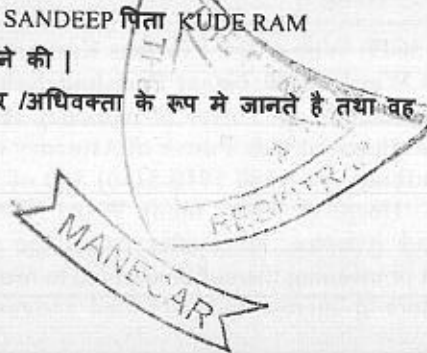 SANDEEP पिता KUDE RAM
ने की |
र /अधिवक्ता के रूप मे जानते है तथा वह
MANESAR